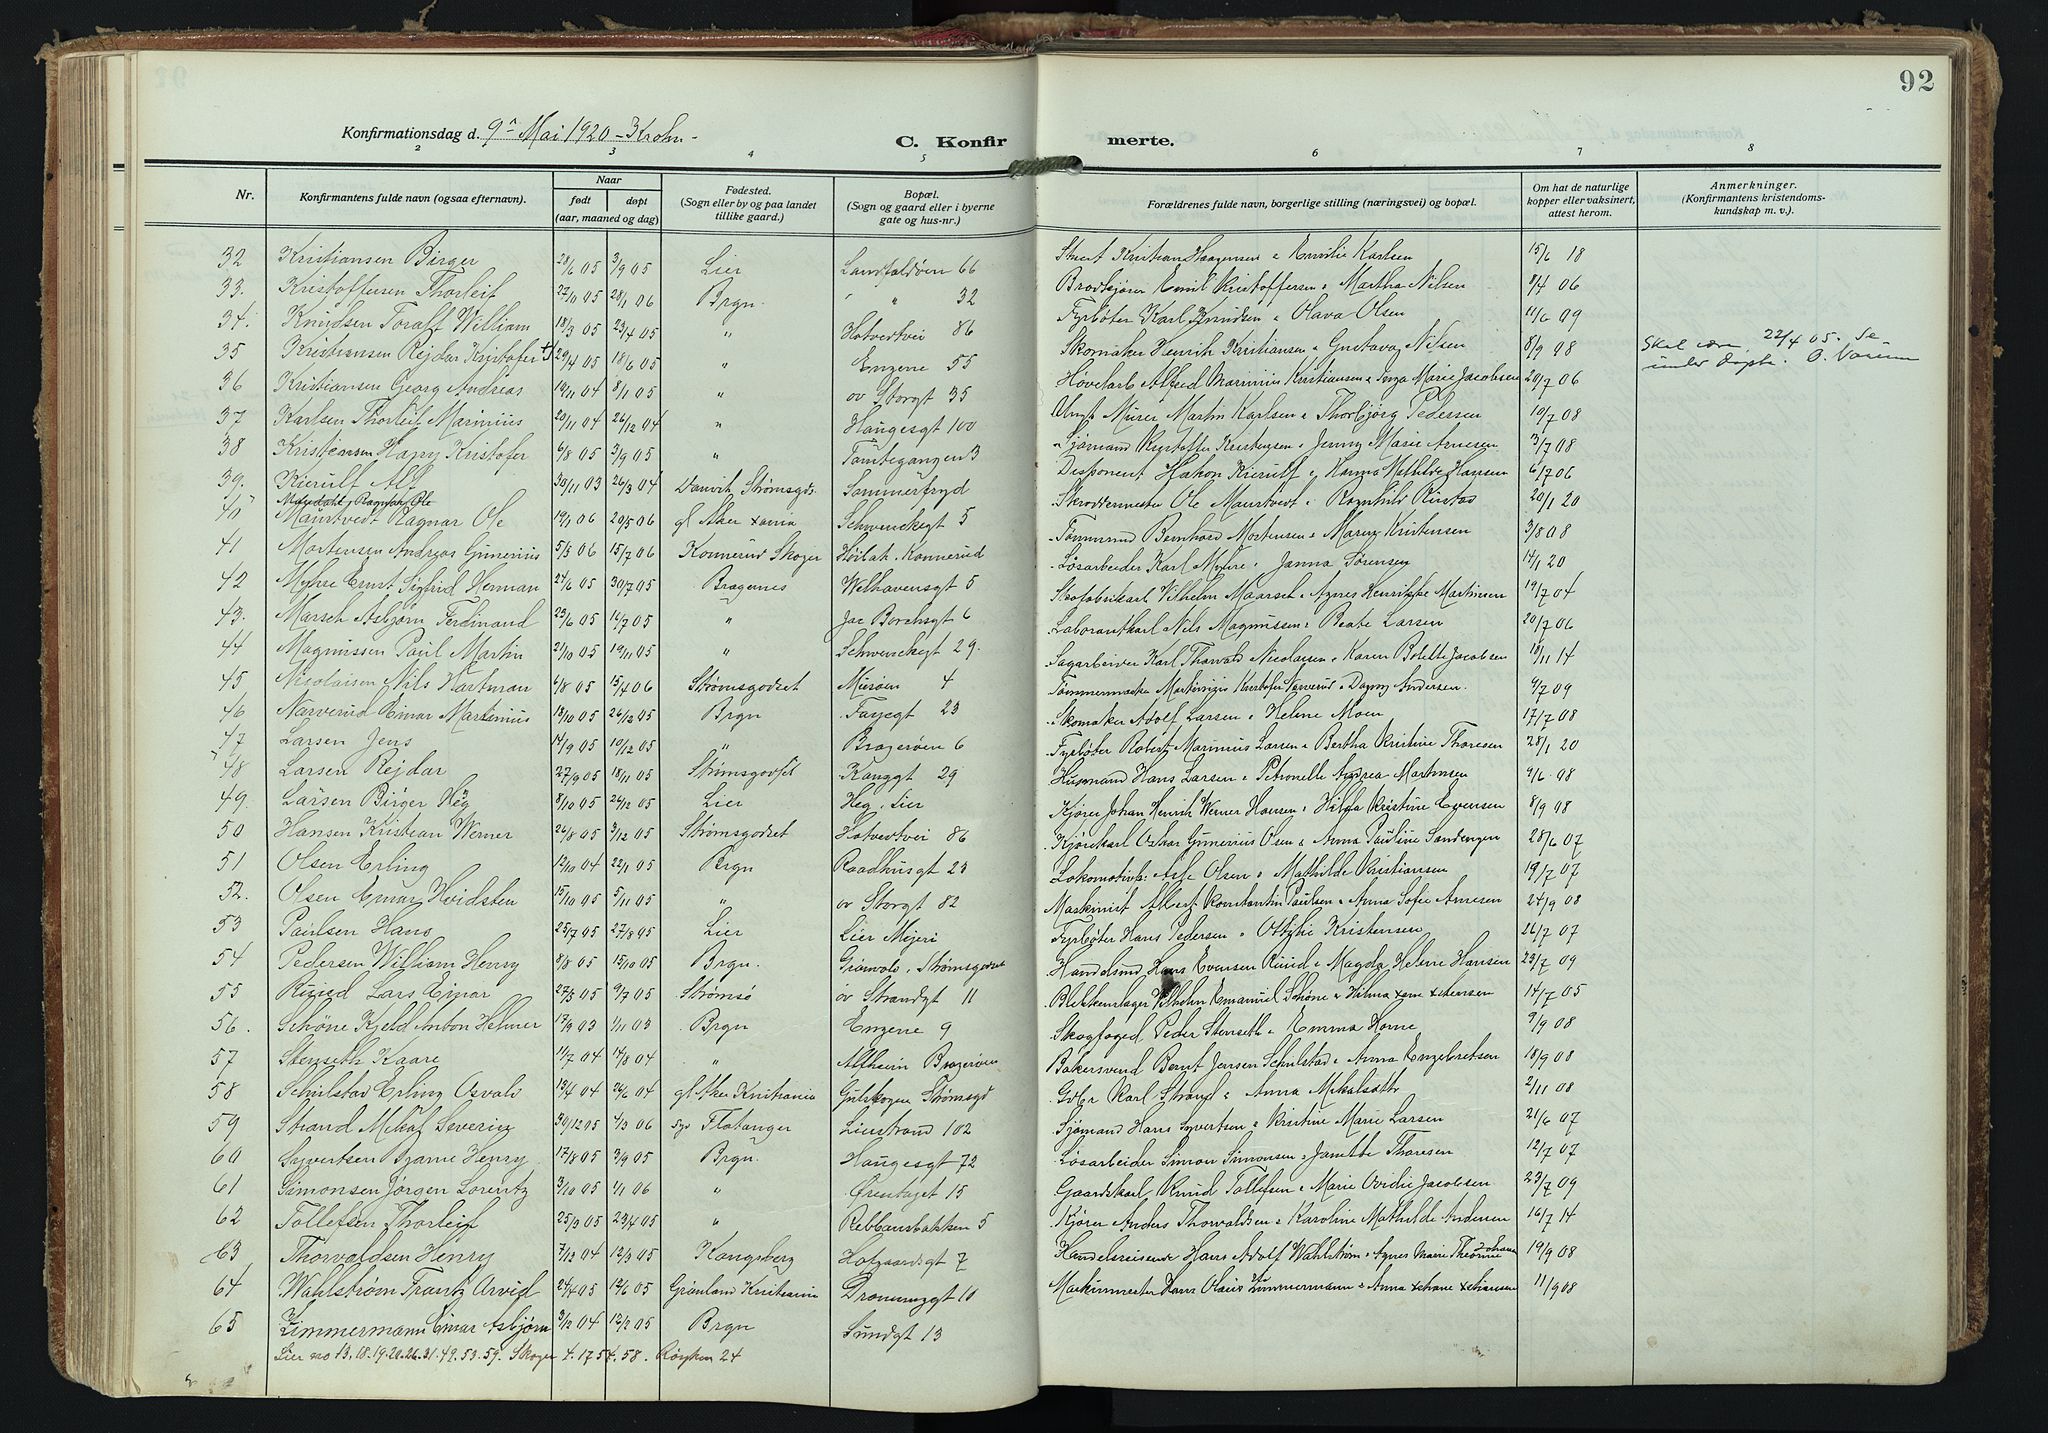 92
Konfirmationsdag d. 9n Mai 1920 - Krohn -
C. Konfirmerte.
2 3 4 5 6 7 8
Nr. Konfirmantens fulde navn (ogsaa efternavn). Naar født døpt (aar, maaned og dag) Fødested. (Sogn eller by og paa landet tillike gaard.) Bopæl. (Sogn og gaard eller i byerne gate og hus-nr.) Forældrenes fulde navn, borgerlige stilling (næringsvei) og bopæl. Om hat de naturlige kopper eller vaksinert, attest herom. Anmerkninger. (Konfirmantens kristendomskundskap m. v.).
32 Kristiansen Birger 28/6 05 3/9 05 Lier Landfaldøen 66 Kristian Haagensen & Emilie Karlsen 15/6 18
33. Kristoffersen Thorleif 27/10 05 28/1 06 Brgn. " " 32 Brødkjører Emil Kristoffersen & Martha Nilsen 8/4 06
34. Knudsen Toralf William 18/3 05 23/4 05 " Hotvedtvei 86 Fyrbøter Karl Knudsen & Olava Olsen 11/6 09
35 Kristiansen Rejdar Kristofer 29/4 05 18/6 05 " Engene 55 Skomaker Henrik Kristiansen & Gustava Nilsen 8/9 08 Skal være 22/4 05. Se under døpte.
36 Kristiansen Georg Andreas 19/11 04 8/1 05 " øv Storgt 35 Høvlearb Alfred Marinius Kristiansen & Inga Marie Jacobsen 20/7 06
37 Karlsen Thorleif Marinius 20/11 04 26/12 04 " Haugesgt 100 Murer Martin Karlsen & Thorbjørg Pedersen 10/7 08
38 Kristensen Harry Kristofer 6/8 05 3/9 05 " Tomtegangen 3 Sjømand Kristoffer Kristensen & Jenny Marie Arnesen 3/7 08
39. Kierulf Alf 30/11 03 26/3 04 Danvik Strømsgds. Sommerfryd Disponent Haakon Kierulf & Hanna Mathilde Hansen 6/7 06
40 Maustvedt Ragnar Ole 19/1 06 20/5 06 gl Aker Xania Schwenckegt 5 Skreddermester Ole Maustvedt & Ragnhild Rustad 20/1 20
41 Mortensen Andreas Ginerius 5/5 06 15/7 06 Konnerud Skoger Høilak. Konnerud Tømmermd Bernhard Mortensen & Marie Kristensen 3/8 08
42 Myhre Ernst Sigfrid Herman 24/6 05 30/7 05 Bragernes Welhavensgt 5 Løsarbeider Karl Myhre & Janna Sørensen 14/1 20
43. Marsch Asbjørn Ferdinand 23/6 05 16/7 05 " Jac Borchsgt 6 Skofabrikarb Vilhelm Maarsch & Agnes Henrikke Martinsen 19/7 04
44 Magnussen Paul Martin 21/10 05 19/11 05 " Schwenckegt 29. Laborantkarl Nils Magnussen & Beate Larsen 20/7 06
45 Nicolaisen Nils Hartman 6/8 05 15/4 06 Strømsgodset Musøen 4 Sagarbeider Karl Thorvald Nicolaisen & Karen Bolette Jacobsen 18/11 14
46 Narverud Einar Martinius 18/10 05 26/12 05 Brgn Fayegt 23 Tømmermester Martinius Kristofer Narverud & Dagny Andersen. 9/7 09
47 Larsen Jens 14/9 05 10/12 05 " Bragerøen 6 Skomaker Adolf Larsen & Helene Moen 17/7 08
48 Larsen Rejdar 27/9 05 18/11 05 Strømsgodset Konggt 29 Fyrbøter Robert Marinius Larsen & Bertha Kristine Thoresen 28/1 20
49. Larsen Birger Heg 8/10 05 26/12 05 Lier Heg. Lier Husmand Hans Larsen & Petronelle Andrea Martinsen 9/6 08
50 Hansen Kristian Werner 26/8 05 3/12 05 Strømsgodset Hotvedtvei 86 Kjører Johan Henrik Werner Hansen & Hilda Kristine Evensen 8/9 08
51 Olsen Erling 12/10 04 22/1 05 Brgn Raadhusgt 23 Kjørekarl Oskar Ginerius Olsen & Anna Pauline Sandengen 28/6 07
52. Olsen Einar Hvidsten 15/10 05 5/11 05 " øv Storgt 82 Lokomotivfr. Olsen & Mathilde Kristiansen 19/7 07
53 Paulsen Hans 23/7 05 27/8 05 Lier Lier Mejeri Maskinist Albert Konstantin Paulsen & Anna Sofie Arnesen 24/9 08
54 Pedersen William Henry 8/8 05 15/10 05 Brgn. Grønvold. Strømsgodset Fyrbøter Hans Pedersen & Ottilie Kristensen 26/7 07
55 Ruud Lars Einar 27/5 05 9/7 05 Strømsø øv Strandgt 11 Handelsmd Hans Evensen Ruud & Magda Helene Hansen 23/7 09
56. Schöne Kjeld Anton Helmer 17/9 03 1/11 03 Brgn Engene 9 Blikkenslager Vilhelm Emanuel Schöne & Hilma Xensen 14/7 05
57 Stenseth Kaare 11/7 04 14/8 04 " Alfheim Bragerøen Skogfoged Peder Stenseth & Emma Horne 9/9 08
58 Schulstad Erling Osvald 13/4 04 26/6 04 gl Aker Kristiania Gulskogen Strømsgd Bakersvend Bernt Jensen Schulstad & Anna Engebretsen 18/9 08
59 Strand Mikal Severin 30/12 05 4/3 06 Flatanger Lierstrand 102 Karl Strand & Anna 2/11 08
60 Syvertsen Bjarne Henry 17/8 05 3/9 05 Brgn. Haugesgt 72 Sjømand Hans Syvertsen & Kristine Marie Larsen 21/6 07
61 Simonsen Jørgen Lorentz 3/10 05 4/1 06 " Ørentaget 15 Løsarbeider Simon Simonsen & Janette Thoresen 12/7 07
62 Tollefsen Thorleif 25/3 05 23/4 05 " Rebbansbakken 5 Gaardskarl Knud Tollefsen & Marie Ovidie Jacobsen 23/7 09
63 Thorvaldsen Henry 7/12 04 12/3 05 Kongsberg Hotgaardsgt 7 Kjører Anders Thorvaldsen & Karoline Mathilde Andersen 16/7 14
64 Wahlstrøm Frantz Arvid 24/4 05 12/6 05 Grønland Kristiania Dronninggt 10 Handelsreisende Hans Adolf Wahlstrøm & Agnes Marie Theonne Johansen 19/9 08
65 Zimmermann Einar Asbjørn 3/12 04 12/2 05 Brgn Sundgt 13 Maskinmester Hans Olaus Zimmermann & Anna Xiane Xtiansen 11/9 08
Lier no 13. 18. 19. 20. 26. 31. 49. 53. 59. Skoger 4. 17 54. 58. Røyken 24